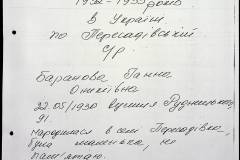 1932-1933 років
В Україні
по Пересадівській
с/р.
Баранова Ганна
22.05/1930 вулиця
91.
народилася в селі Пересадівка,
була маленька, не
пам'ятаю.